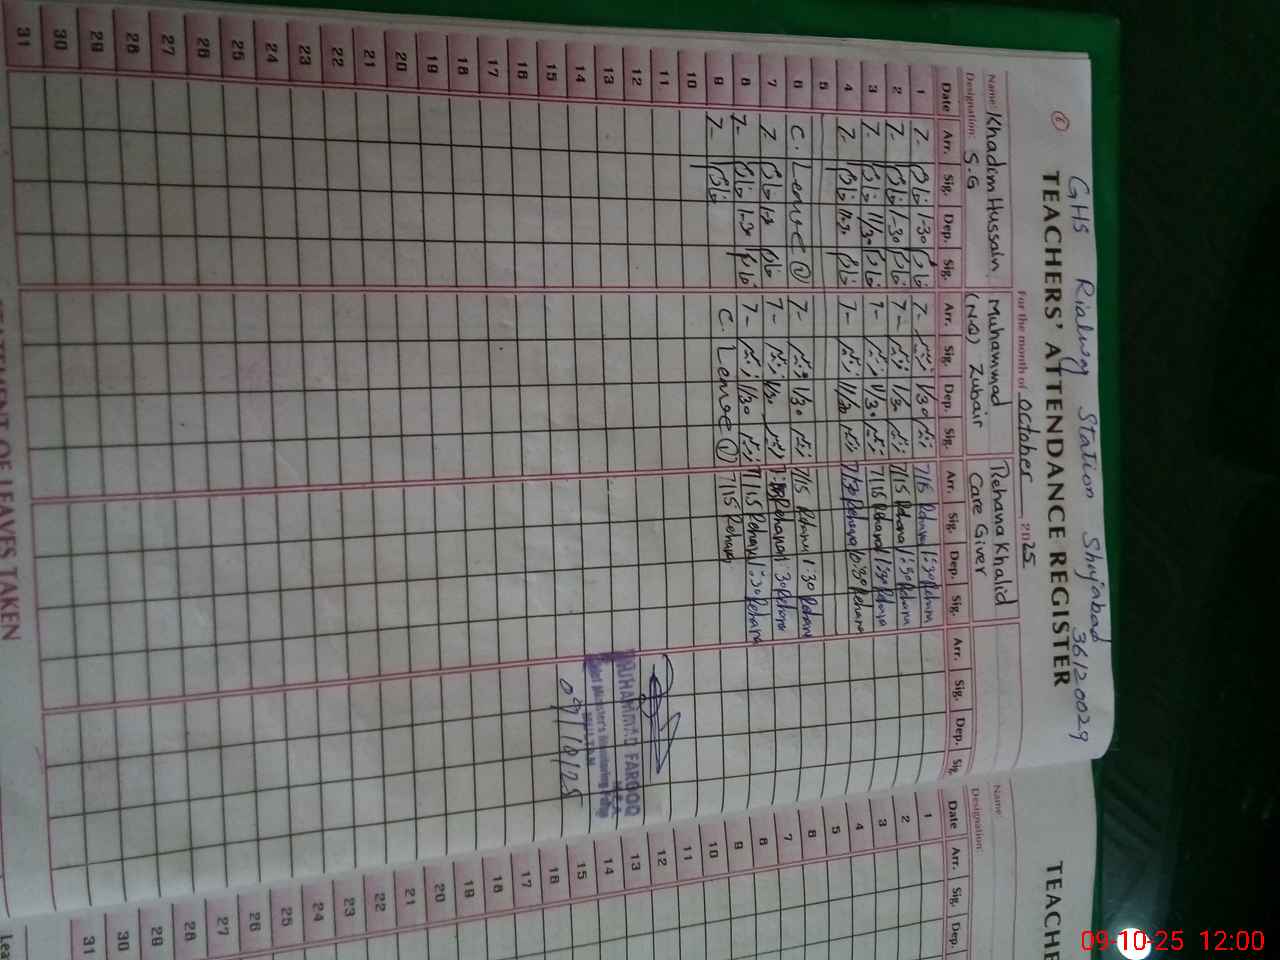 GHS Rialway Station Shujabad 36120029
6 TEACHERS' ATTENDANCE REGISTER
For the month of October 2025
Name: Khadim Hussain Muhammad Zubair Rehana Khalid
Designation: S.G (N.Q) Care Giver
Date Arr. Sig. Dep. Sig. Arr. Sig. Dep. Sig. Arr. Sig. Dep. Sig. Arr. Sig. Dep. Sig.
1 7- 1-30 7- 1/30 7/15 Rehana 1:30 Rehana
2 7- 1-30 7- 1/30 7/15 Rehana 1:30 Rehana
3 7- 11/30 7- 11/30 7/15 Rehana 1:30 Rehana
4 7- 7- 11/30 7/30 Rehana Rehana
5
6 C. Leave 1 7- 1/30 7/15 Rehana 1:30 Rehana
7 7 7- 1/30 Rehana 1:30 Rehana
8 7- 1-30 7- 1/30 7/15 Rehana 1:30 Rehana
9 7- C. Leave 1 7/15 Rehana
10
11
12
13 MUHAMMAD FAROOQ
14 Chief Minister's Monitoring Force
MULTAN
15 09/10/25
16
17
18
19
20
21
22
23
24
25
26
27
28
29
30
31
STATEMENT OF LEAVES TAKEN
TEACHE
Name:
Designation:
Date Arr. Sig. Dep.
1
2
3
4
5
6
7
8
9
10
11
12
13
14
15
16
17
18
19
20
21
22
23
24
25
26
27
28
29
30
31
Lea
09-10-25 12:00